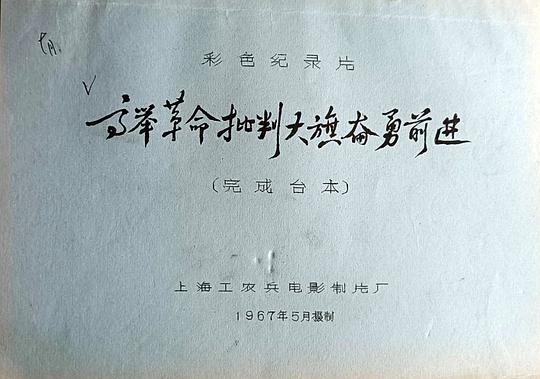 彩色纪录片
高举革命批判大旗奋勇前进
(完成台本)
上海工农兵电影制片厂
1967年5月摄制